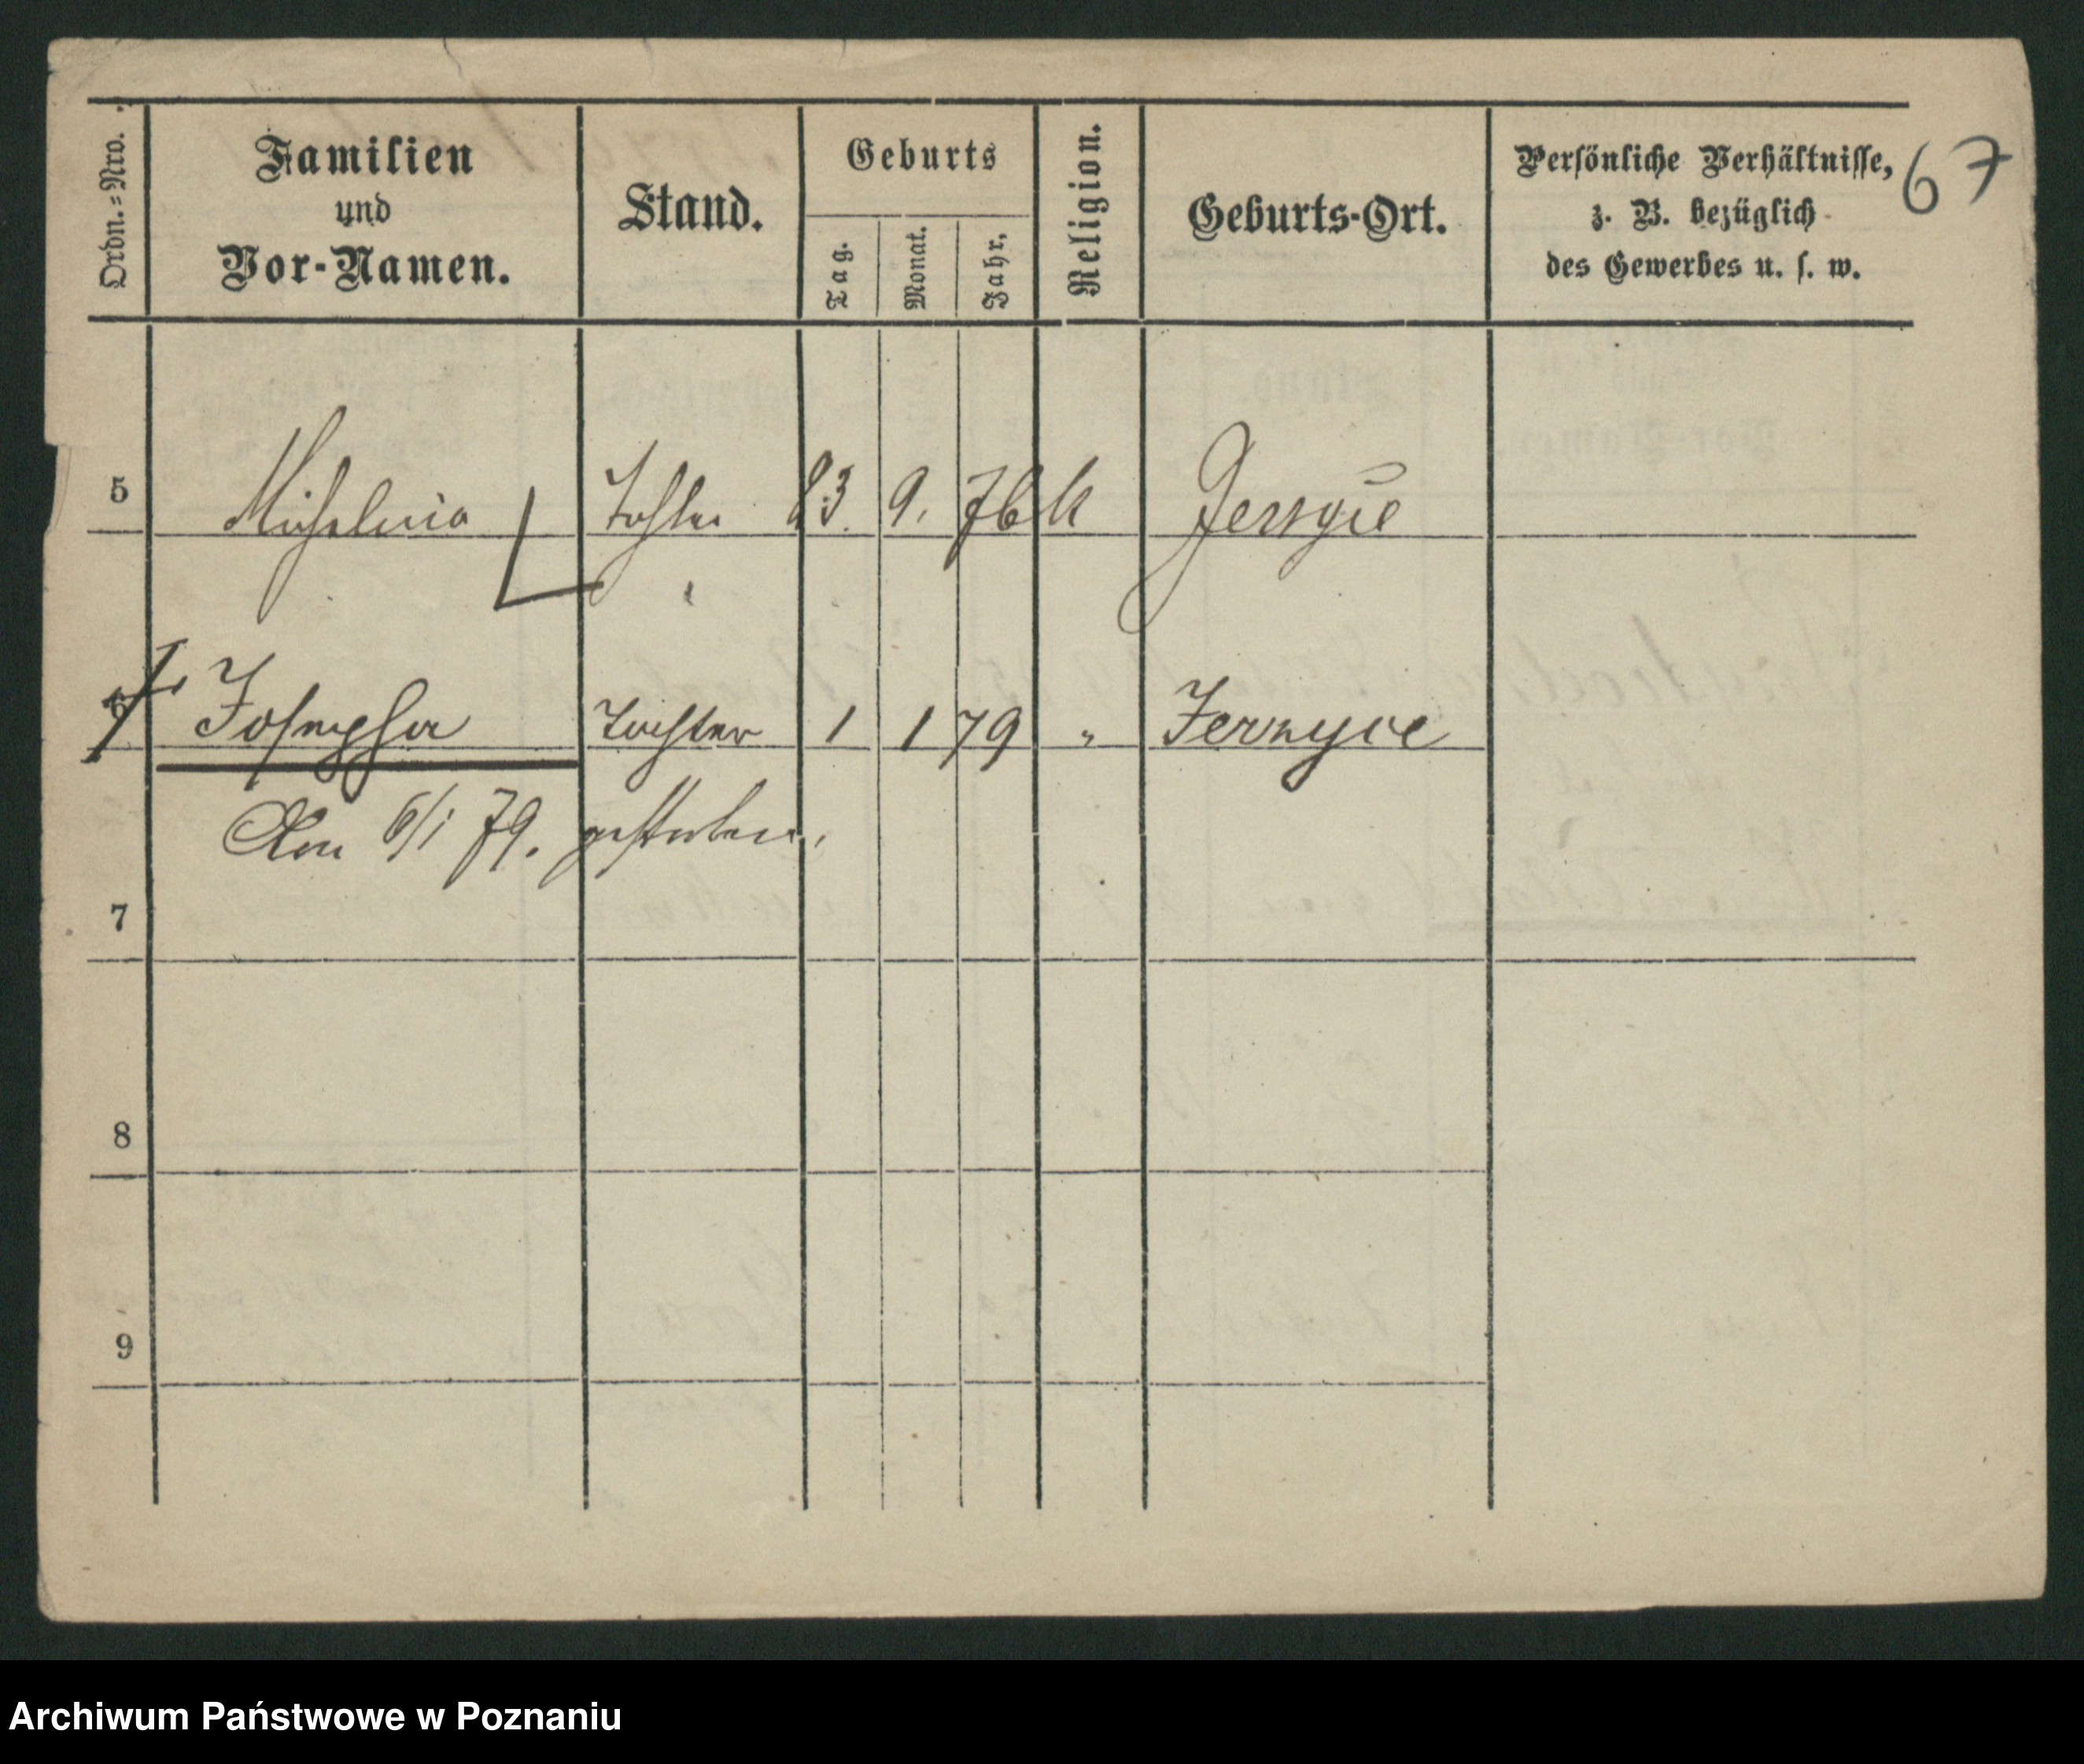 67
Ordn.=Nro.
Familien
und
Vor-Namen.
Stand.
Geburts
Tag.
Monat.
Jahr.
Religion.
Geburts-Ort.
Persönliche Verhältnisse,
z. B. bezüglich
des Gewerbes u. s. w.
5 Michalina Tochter 23. 9. 76 K
6 Josepha Tochter 1 1 79 " Jerzyce
Am 6/1 79. gestorben.
7
8
9
Archiwum Państwowe w Poznaniu